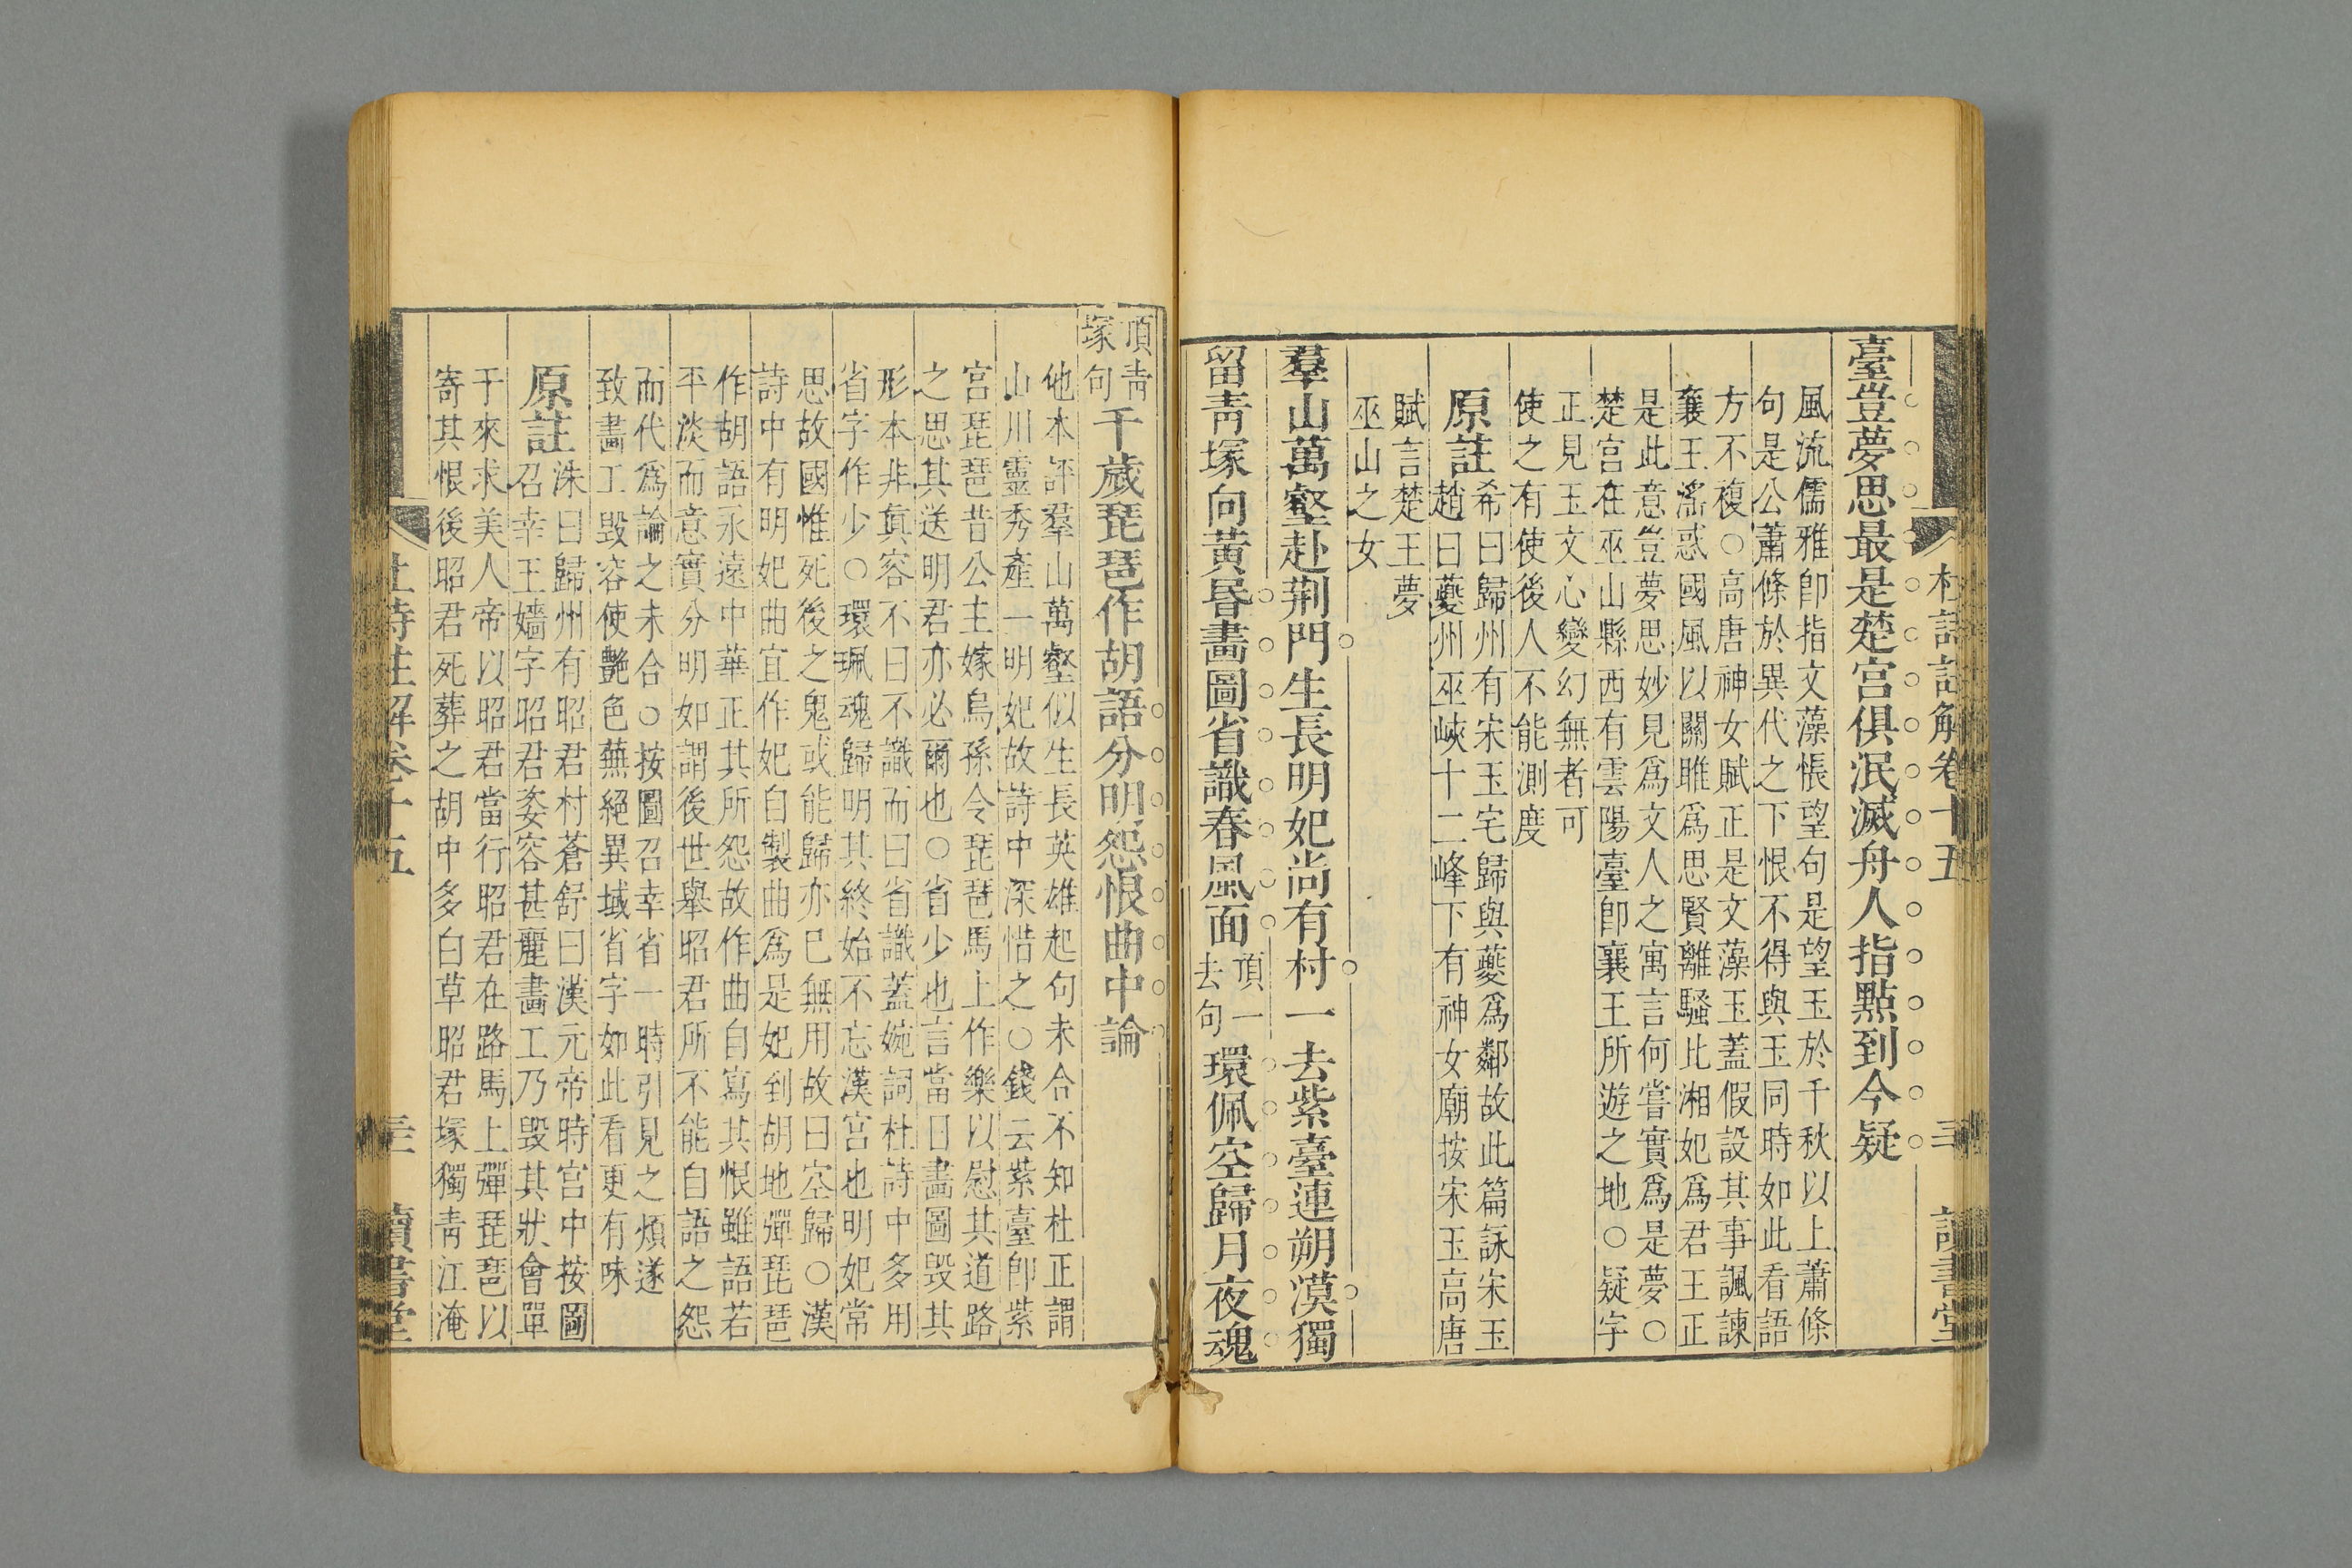 杜詩註解卷十五 讀書堂
臺豈夢思最是楚宮俱泯滅舟人指點到今疑
風流儒雅卽指文藻悵望句是望玉於千秋以上蕭條
句是公蕭條於異代之下恨不得與玉同時如此看語
方不複○高唐神女賦正是文藻玉蓋假設其事諷諫
襄王滛惑國風以關雎爲思賢離騷比湘妃爲君王正
是此意豈夢思妙見爲文人之寓言何嘗實爲是夢○
楚宮在巫山縣西有雲陽臺卽襄王所遊之地○疑字
正見玉文心變幻無者可
使之有使後人不能測度
原註
希曰歸州有宋玉宅歸與夔爲鄰故此篇詠宋玉
趙曰夔州巫峽十二峰下有神女廟按宋玉高唐
賦言楚王夢
巫山之女
羣山萬壑赴荆門生長明妃尚有村一去紫臺連朔漠獨
留靑塚向黃昬畵圖省識春風面頂一去句環佩空歸月夜魂
頂靑塚句千歲琵琶作胡語分明怨恨曲中論
他本評羣山萬壑似生長英雄起句未合不知杜正謂
山川靈秀產一明妃故詩中深惜之○錢云紫臺卽紫
宮琵琶昔公主嫁烏孫令琵琶馬上作樂以慰其道路
之思其送明君亦必爾也○省少也言當日畵圖毀其
形本非眞容不曰不識而曰省識蓋婉詞杜詩中多用
省字作少○環珮魂歸明其終始不忘漢宮也明妃常
思故國惟死後之鬼或能歸亦已無用故曰空歸○漢
詩中有明妃曲宜作妃自製曲爲是妃到胡地彈琵琶
作胡語永遠中華正其所怨故作曲自寫其恨雖語若
平淡而意實分明如謂後世舉昭君所不能自語之怨
而代爲論之未合○按圖召幸省一時引見之煩遂
致畵工毀容使艶色蕪絕異域省字如此看更有味
原註
洙曰歸州有昭君村蒼舒曰漢元帝時宮中按圖
召幸王嬙字昭君姿容甚麗畵工乃毀其狀會單
于來求美人帝以昭君當行昭君在路馬上彈琵琶以
寄其恨後昭君死葬之胡中多白草昭君塚獨靑江淹
杜詩註解卷十五 讀書堂